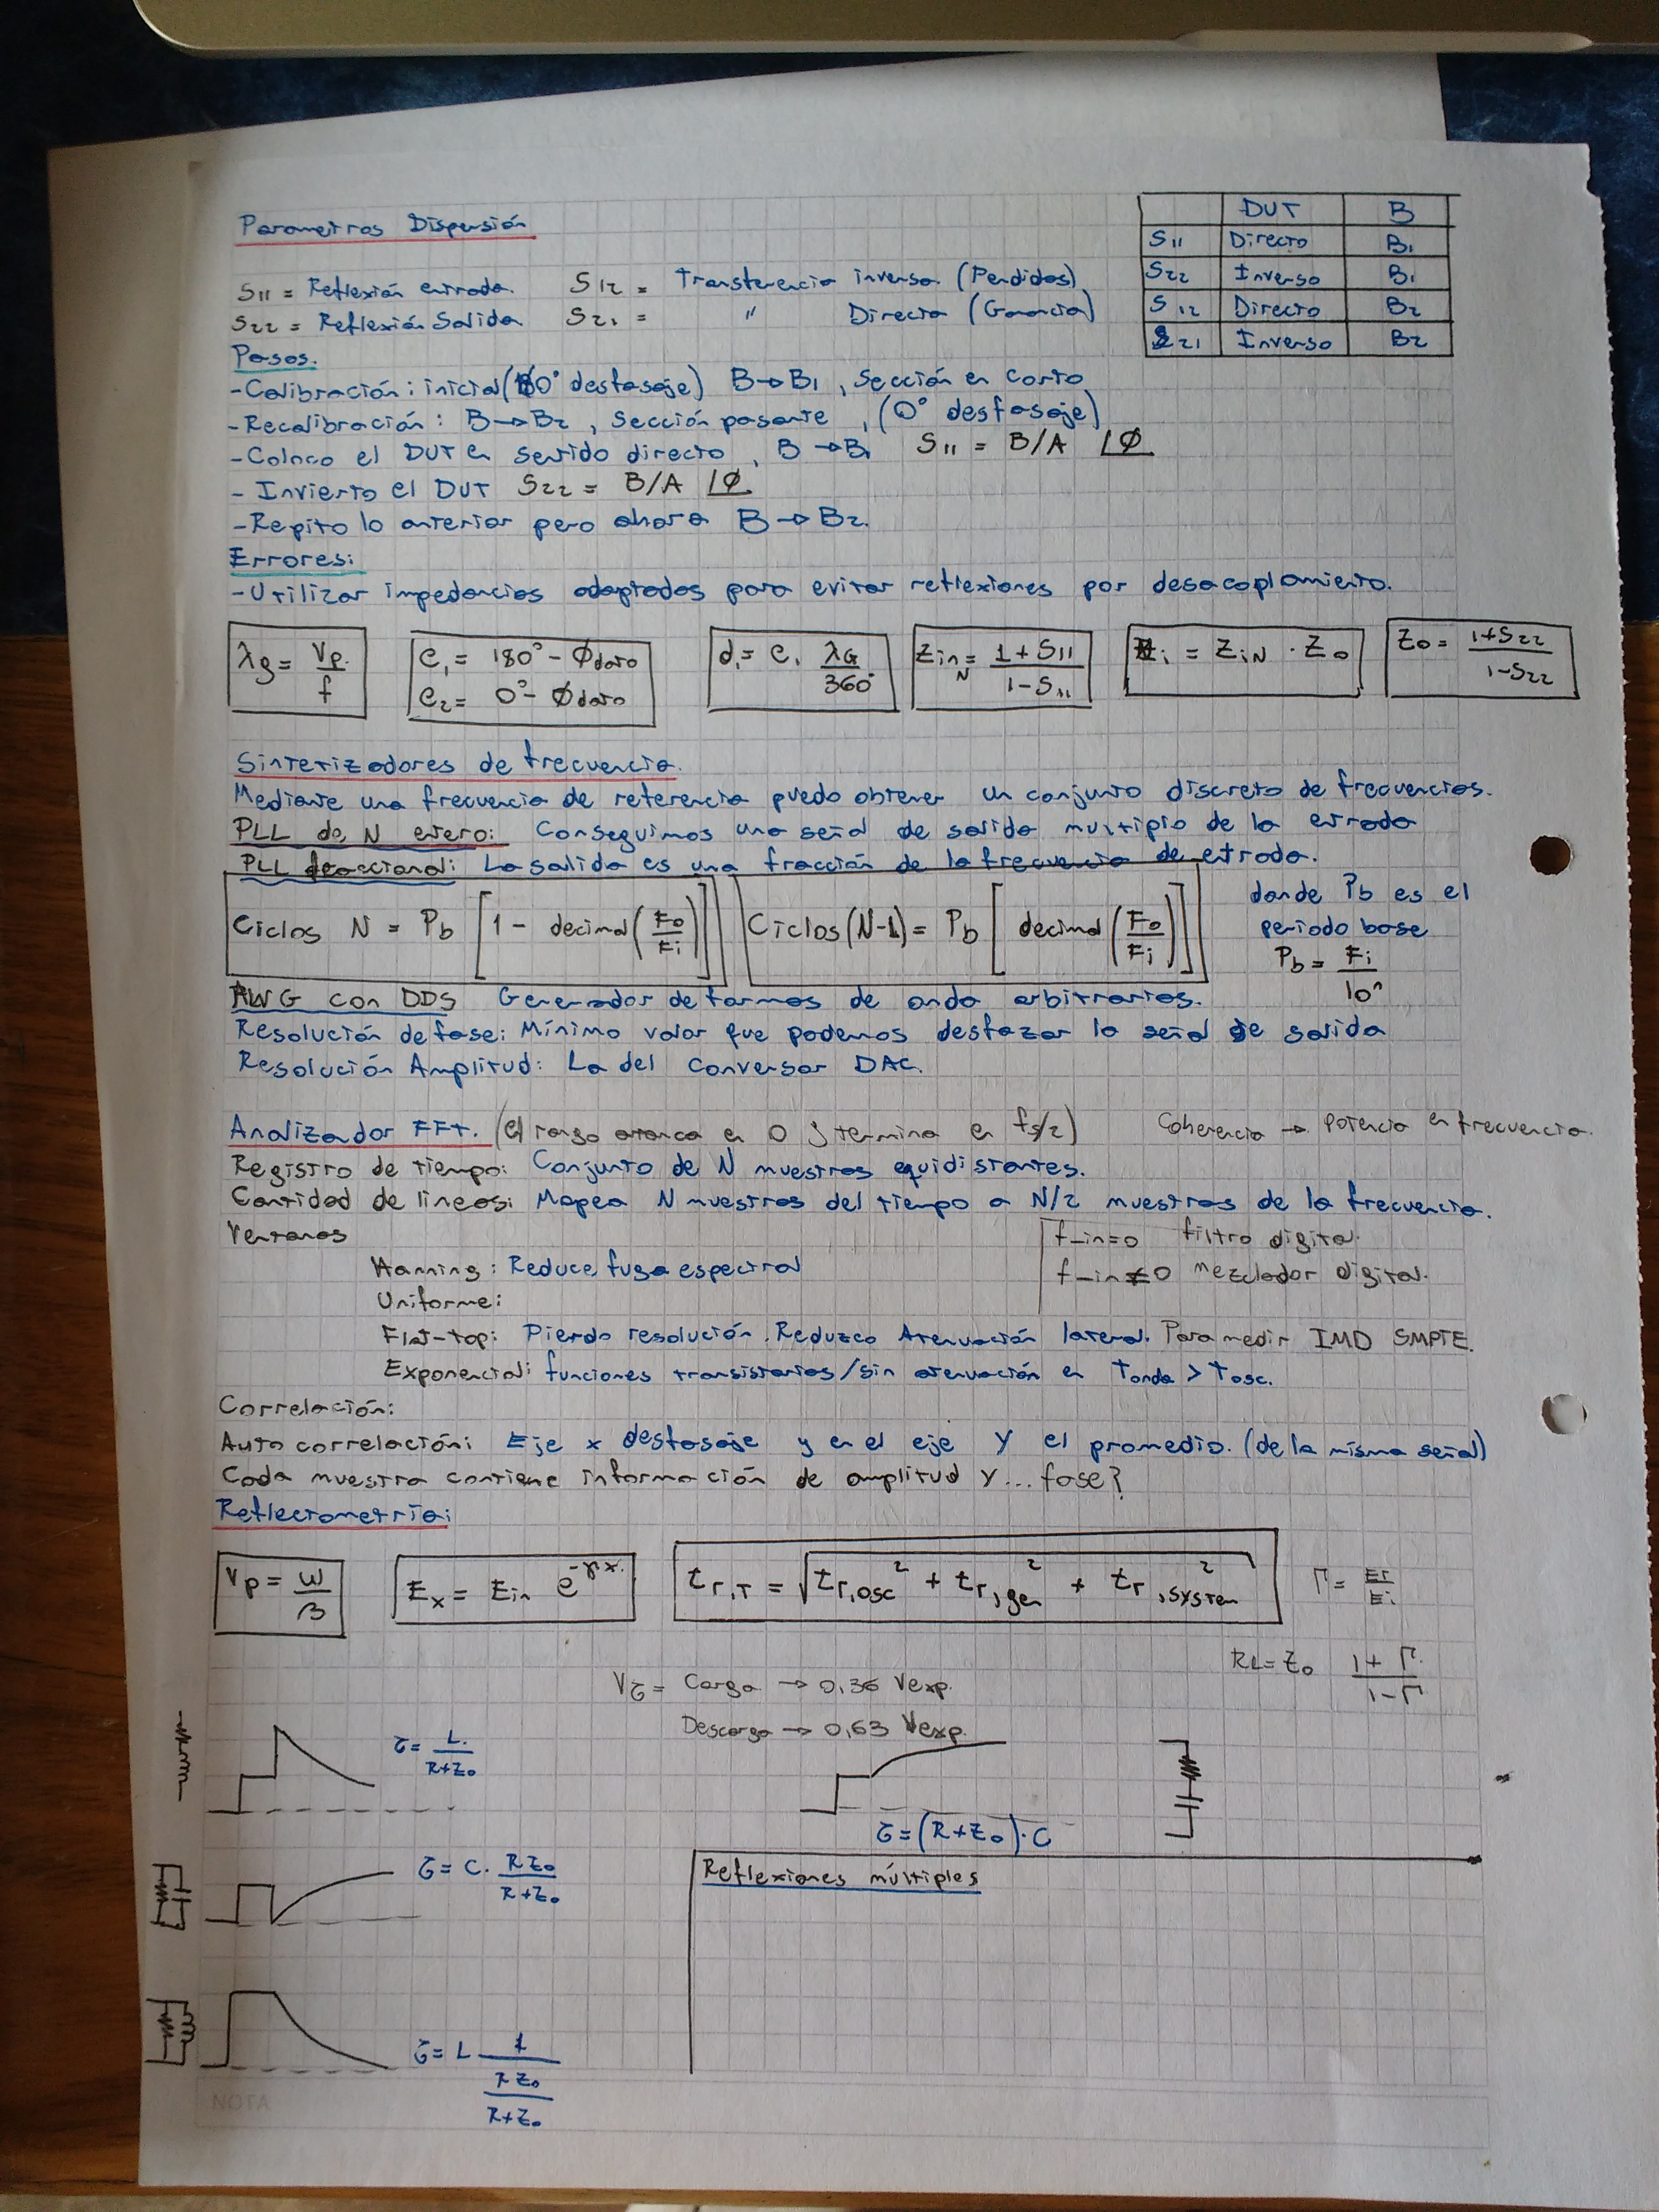 Parametros Dispersión
DUT B
S11 Directo B1
S22 Inverso B1
S12 Directo B2
S21 Inverso B2
S11 = Reflexión entrada. S12 = Transferencia inversa (Perdidas)
S22 = Reflexión Salida S21 = " Directa (Ganancia)
Pasos.
-Calibración: inicial (180° desfasaje) B→B1, Sección en corto
-Recalibración: B→B2, Sección pasante, (0° desfasaje)
-Coloco el DUT en sentido directo, B→B1 S11 = B/A ∠Ø
- Invierto el DUT S22 = B/A ∠Ø
-Repito lo anterior pero ahora B→B2.
Errores:
-Utilizar impedancias adaptadas para evitar reflexiones por desacoplamiento.
λg = Vp/f
e1 = 180° - Ødato
e2 = 0° - Ødato
d1 = e1 λG/360°
ZinN = 1+S11/1-S11
Zi = ZiN · Zo
Zo = 1+S22/1-S22
Sintetizadores de frecuencia.
Mediante una frecuencia de referencia puedo obtener un conjunto discreto de frecuencias.
PLL de N entero: Conseguimos una señal de salida multiplo de la entrada
PLL fraccional: La salida es una fracción de la frecuencia de entrada.
Ciclos N = Pb [1 - decimal(Fo/Fi)] Ciclos (N-1) = Pb [decimal(Fo/Fi)]
donde Pb es el
periodo base
Pb = Fi/10^n
AWG con DDS Generador de formas de onda arbitrarias.
Resolución de fase: Mínimo valor que podemos desfazar la señal de salida
Resolución Amplitud: La del conversor DAC.
Analizador FFT. (el rango arranca en 0 y termina en fs/2) Coherencia → Potencia en frecuencia.
Registro de tiempo: Conjunto de N muestras equidistantes.
Cantidad de lineas: Mapea N muestras del tiempo a N/2 muestras de la frecuencia.
Ventanas
f_in=0 filtro digital.
f_in≠0 mezclador digital.
Hanning: Reduce fuga espectral
Uniforme:
Flat-top: Pierdo resolución. Reduzco Atenuación lateral. Para medir IMD SMPTE.
Exponencial: funciones transistorias/sin atenuación en Tonda > Tosc.
Correlación:
Auto correlación: Eje x desfasaje y en el eje Y el promedio. (de la misma señal)
Cada muestra contiene información de amplitud Y... fase?
Reflectometria:
Vp = ω/β
Ex = Ein e^-γx.
tr,T = √(tr,osc² + tr,gen² + tr,system²)
Γ = Er/Ei
RL = Zo 1+Γ/1-Γ
Vτ = Carga → 0,36 Vexp.
Descarga → 0,63 Vexp.
τ = L/R+Zo
τ = (R+Zo)·C
τ = C. RZo/R+Zo
Reflexiones múltiples
τ = L 1/(RZo/R+Zo)
NOTA